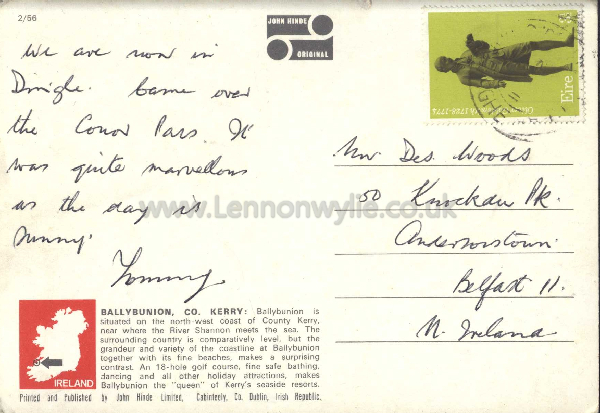 2/56
JOHN HINDE
ORIGINAL
We are now in
Dingle. Came over
the Conor Pass It
was quite marvellous
as the day is
sunny.
Tommy
Eire
Mr Des. Woods
50 Knockdu Pk.
Andersonstown.
Belfast 11.
N. Ireland
www.Lennonwylie.co.uk
IRELAND
BALLYBUNION, CO. KERRY: Ballybunion is
situated on the north-west coast of County Kerry,
near where the River Shannon meets the sea. The
surrounding country is comparatively level, but the
grandeur and variety of the coastline at Ballybunion
together with its fine beaches, makes a surprising
contrast. An 18-hole golf course, fine safe bathing,
dancing and all other holiday attractions, makes
Ballybunion the "queen" of Kerry's seaside resorts.
Printed and Published by John Hinde Limited, Cabinteely, Co. Dublin, Irish Republic.